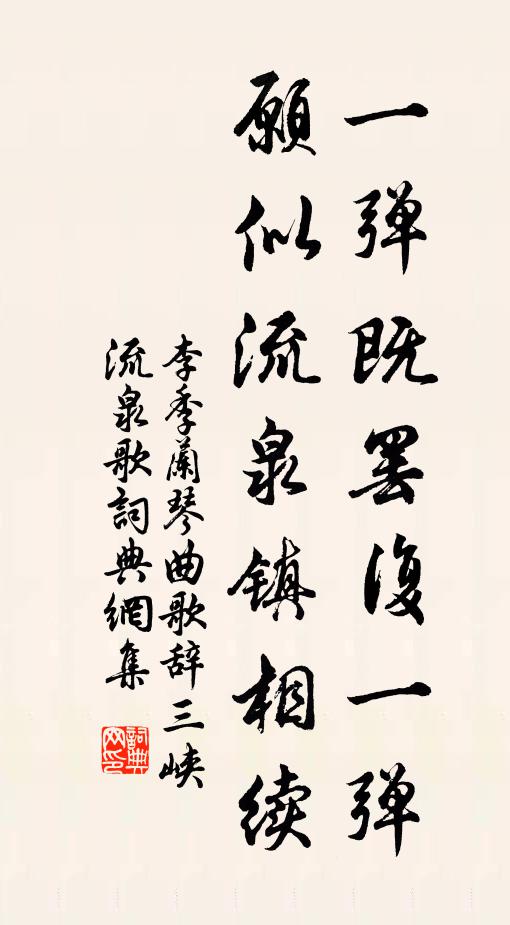 一弹既罢復一弹
願似流泉镇相续
李季蘭琴曲歌辞三峡
流泉歌詞典網集
詞典
网印